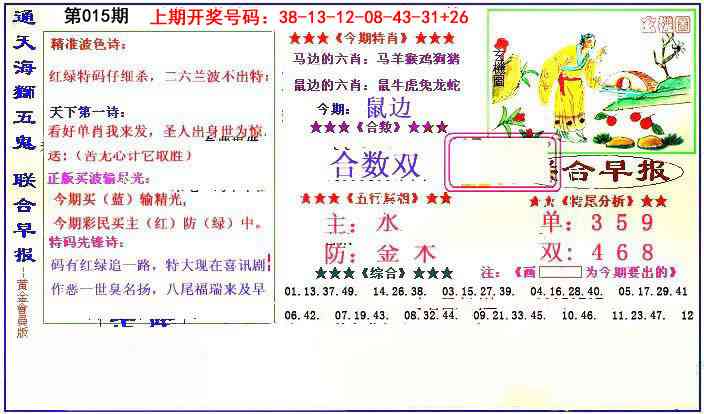 通天海狮五鬼 联合早报
--黄金會員版
第015期
上期开奖号码：38-13-12-08-43-31+26
精准波色诗：
红绿特码仔细杀，二六兰波不出特；
天下第一诗：
看好单肖我来发，圣人出身世为惊
送：(苦无心计它取胜)
正版买波输尽光：
今期买（蓝）输精光，
今期彩民买主（红）防（绿）中。
特码先锋诗：
码有红绿追一路，特大现在喜讯剧
作恶一世臭名扬，八尾福瑞来及早
★★★《今期特肖》★★★
马边的六肖：马羊猴鸡狗猪
鼠边的六肖：鼠牛虎兔龙蛇
今期：鼠边
★★★《合数》★★★
合数双
★★★《五行属相》★★★
主：水
防：金木
★★★《综合》★★★
玄機圖
玄機圖
联合早报
★★《特尾分析》★★
单：3 5 9
双：4 6 8
注：《画 为今期要出的》
01.13.37.49. 14.26.38. 03.15.27.39. 04.16.28.40. 05.17.29.41
06.42. 07.19.43. 08.32.44. 09.21.33.45. 10.46. 11.23.47. 12